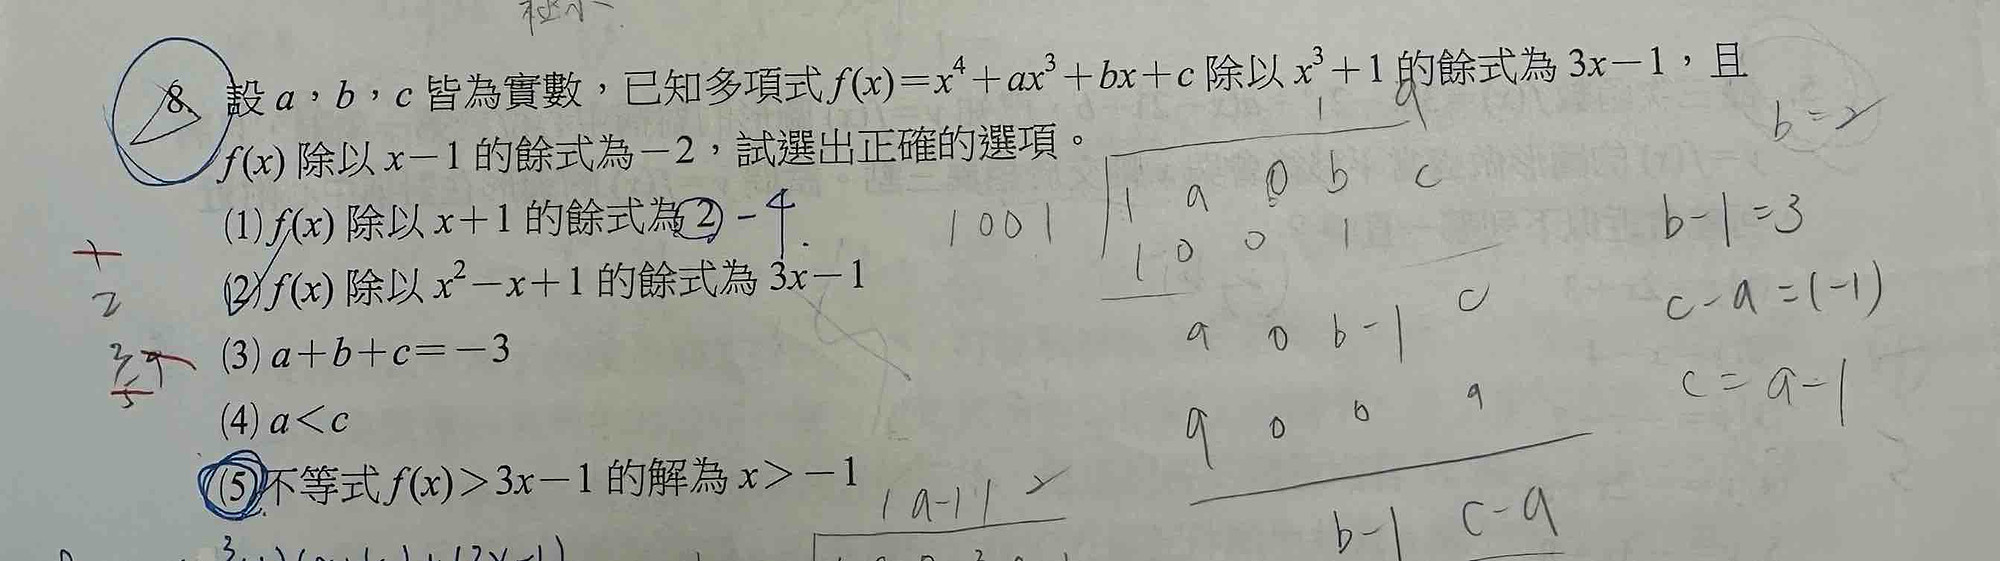 8. 設 a，b，c 皆為實數，已知多項式 f(x)=x⁴+ax³+bx+c 除以 x³+1 的餘式為 3x−1，且
f(x) 除以 x−1 的餘式為−2，試選出正確的選項。
(1) f(x) 除以 x+1 的餘式為 2 −4
(2) f(x) 除以 x²−x+1 的餘式為 3x−1
(3) a+b+c=−3
(4) a<c
(5) 不等式 f(x)>3x−1 的解為 x>−1
1 a
1 a 0 b c
1001
1 0 0 1
a 0 b-1 c
a 0 0 a
b-1 c-a
b=2
b-1=3
c-a=(-1)
c=a-1
2
1 a-1 1